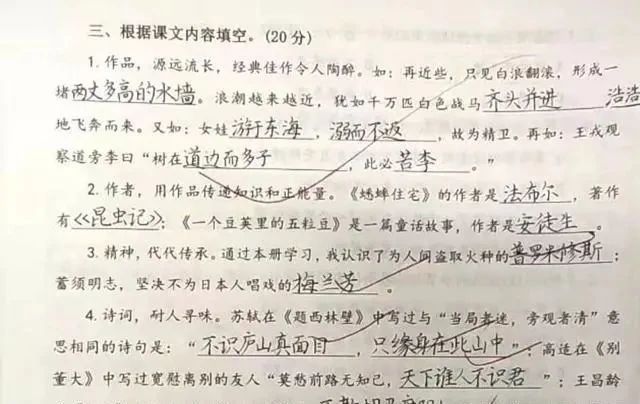 三、根据课文内容填空。(20分)
1. 作品，源远流长，经典佳作令人陶醉。如：再近些，只见白浪翻滚，形成一
堵两丈多高的水墙。浪潮越来越近，犹如千万匹白色战马齐头并进 浩浩
地飞奔而来。又如：女娃游于东海，溺而不返，故为精卫。再如：王戎观
察道旁李曰“树在道边而多子，此必苦李。”
2. 作者，用作品传递知识和正能量。《蟋蟀住宅》的作者是法布尔，著作
有《昆虫记》；《一个豆荚里的五粒豆》是一篇童话故事，作者是安徒生。
3. 精神，代代传承。通过本册学习，我认识了为人间盗取火种的普罗米修斯；
蓄须明志，坚决不为日本人唱戏的梅兰芳。
4. 诗词，耐人寻味。苏轼在《题西林壁》中写过与“当局者迷，旁观者清”意
思相同的诗句是：“不识庐山真面目，只缘身在此山中”；高适在《别
董大》中写过宽慰离别的友人“莫愁前路无知己，天下谁人不识君”；王昌龄